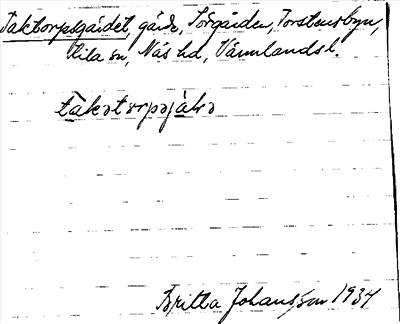 Taktorpsgärdet, gärde, Sörgården, Torstensbyn,
Kila sn, Näs hd, Värmlands l.
takətorpsjälə
Britta Johansson 1934